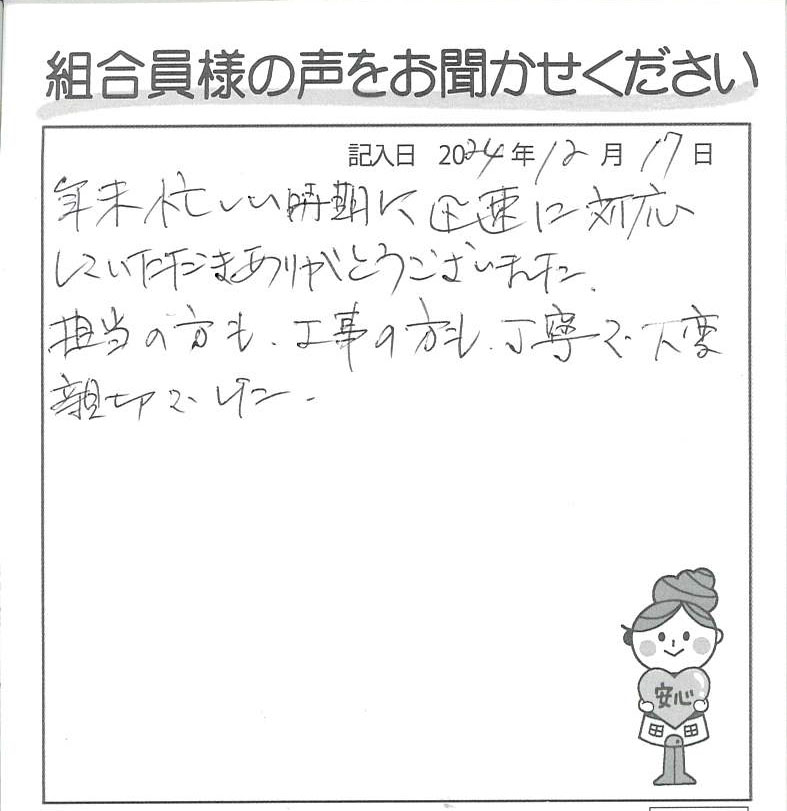 組合員様の声をお聞かせください
記入日 2024年12月17日
年末忙しい時期に迅速に対応
していただきありがとうございました。
担当の方も、工事の方も、丁寧で大変
親切でした。
安心